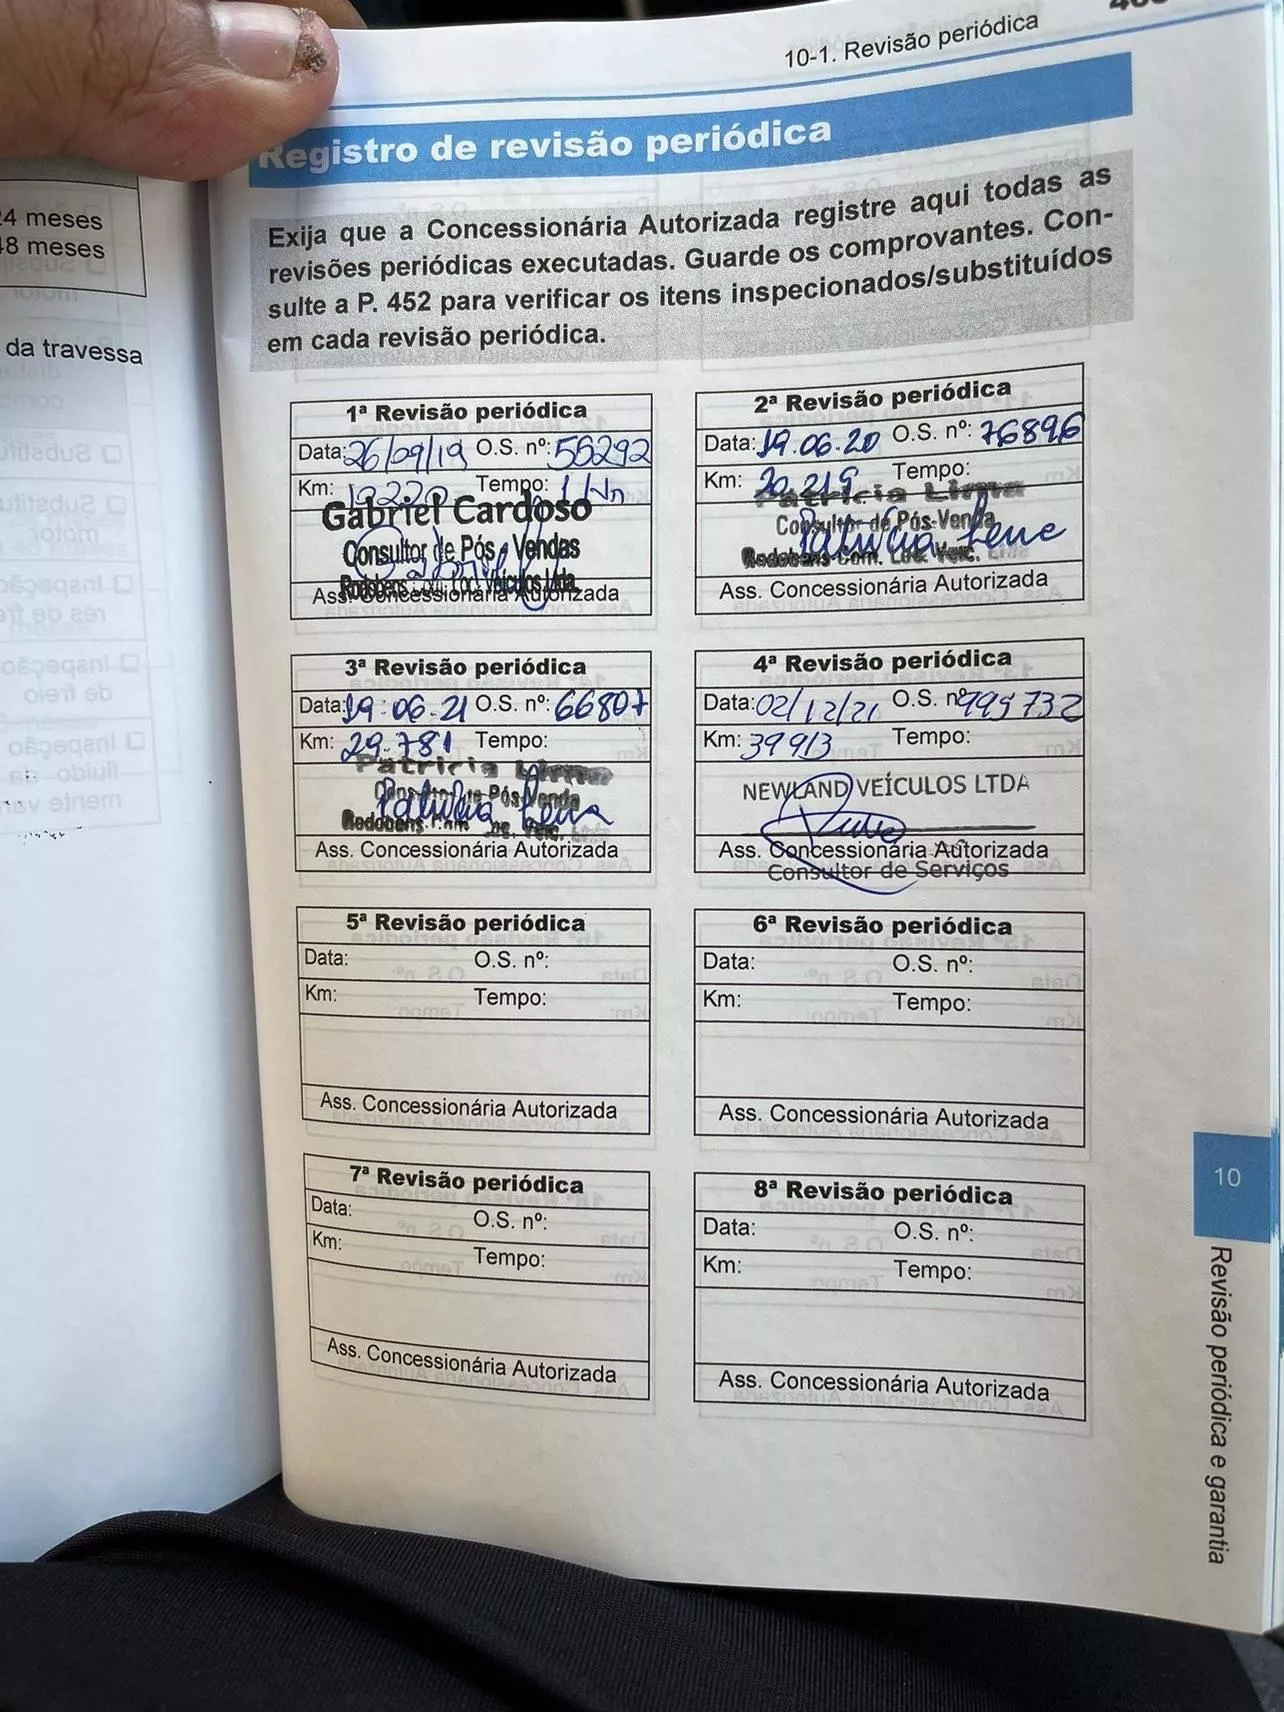 10-1. Revisão periódica
Registro de revisão periódica
24 meses
48 meses
da travessa
Exija que a Concessionária Autorizada registre aqui todas as
revisões periódicas executadas. Guarde os comprovantes. Con-
sulte a P. 452 para verificar os itens inspecionados/substituídos
em cada revisão periódica.
1ª Revisão periódica
Data: 26/09/19 O.S. nº: 56292
Km: Tempo:
Gabriel Cardoso
Consultor de Pós Vendas
Rodobens Com. Loc. Veículos Ltda.
Ass. Concessionária Autorizada
2ª Revisão periódica
Data: 19.06.20 O.S. nº: 76896
Km: 20.219 Tempo:
Patricia Lima
Consultor de Pós-Venda
Rodobens Com. Loc. Veic.
Ass. Concessionária Autorizada
3ª Revisão periódica
Data: 19.06.21 O.S. nº: 66807
Km: 29.781 Tempo:
Patricia
Pós-Venda
Rodobens
Ass. Concessionária Autorizada
4ª Revisão periódica
Data: 02/12/21 O.S. nº 999732
Km: 39913 Tempo:
NEWLAND VEÍCULOS LTDA
Ass. Concessionária Autorizada
Consultor de Serviços
5ª Revisão periódica
Data: O.S. nº:
Km: Tempo:
Ass. Concessionária Autorizada
6ª Revisão periódica
Data: O.S. nº:
Km: Tempo:
Ass. Concessionária Autorizada
7ª Revisão periódica
Data: O.S. nº:
Km: Tempo:
Ass. Concessionária Autorizada
8ª Revisão periódica
Data: O.S. nº:
Km: Tempo:
Ass. Concessionária Autorizada
10
Revisão periódica e garantia